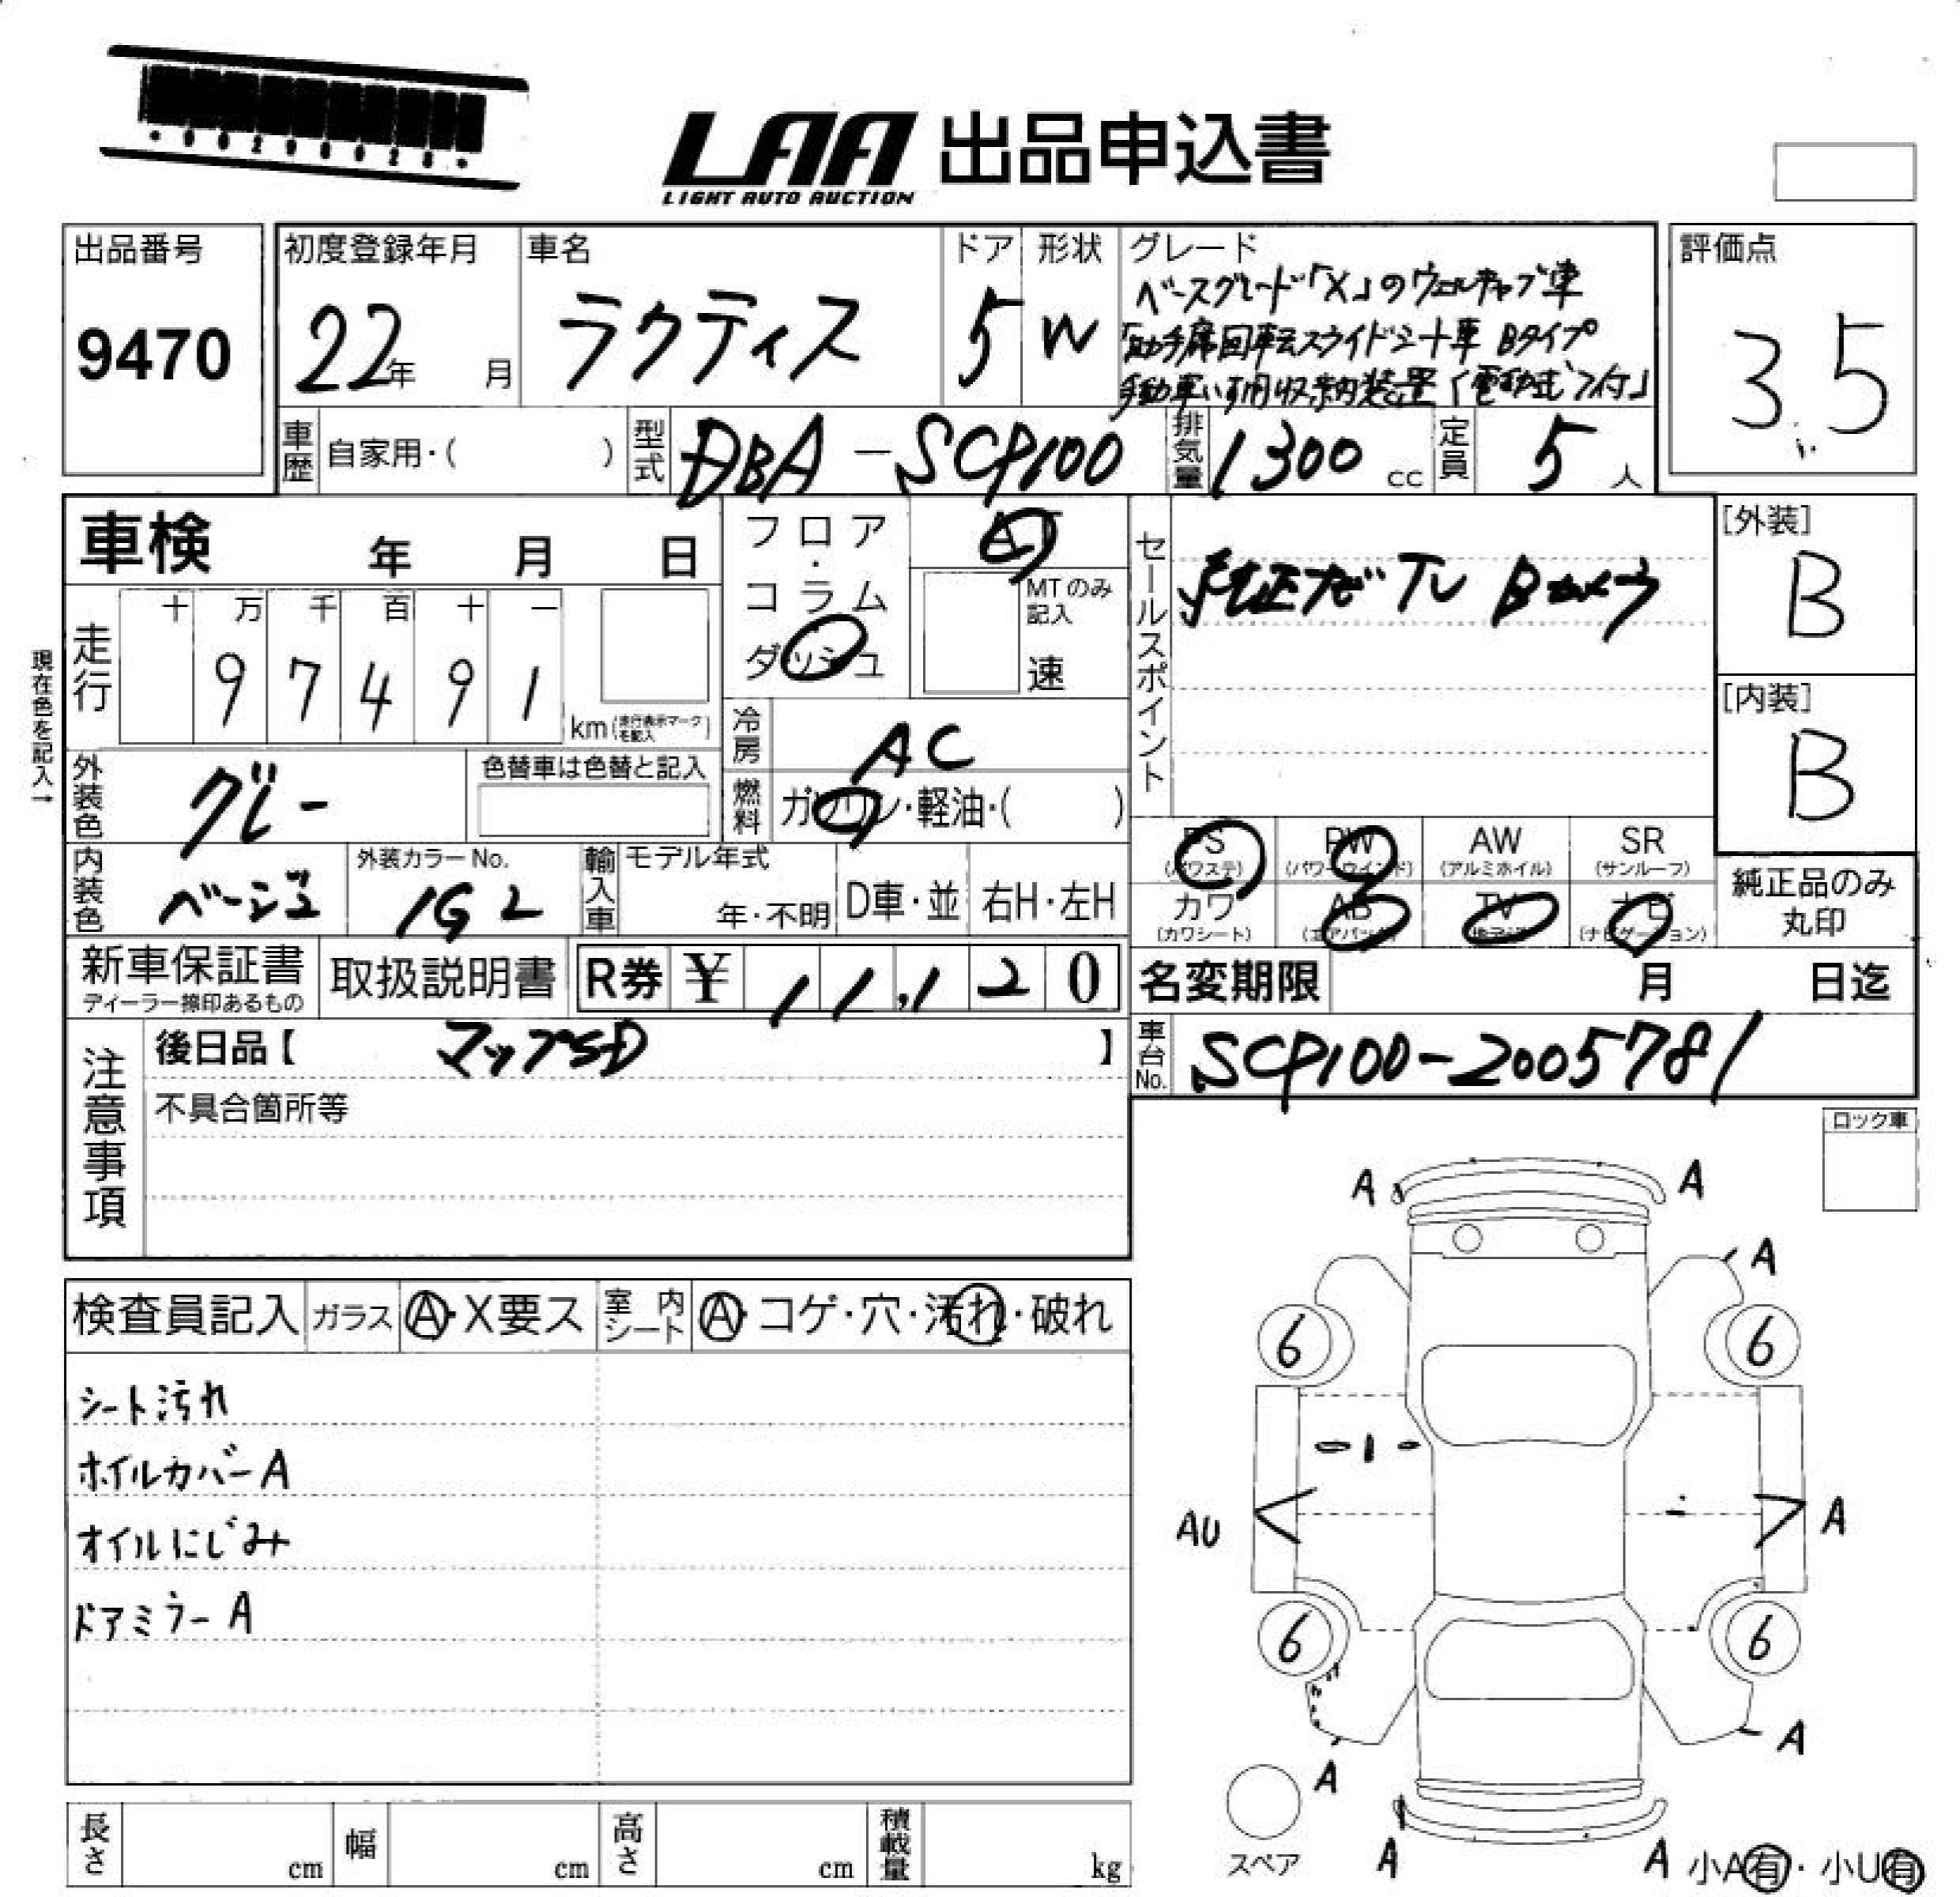 LAA 出品申込書
LIGHT AUTO AUCTION
出品番号
9470
初度登録年月
22年 月
車名
ラクティス
ドア
5
形状
W
グレード
ベースグレード「X」のウェルキャブ車
「助手席回転スライドシート車 Bタイプ
手動車いす用収納装置(電動式)付」
評価点
3.5
車歴 自家用・( )
型式 DBA-SCP100
排気量 1300 cc
定員 5 人
車検 年 月 日
フロア・コラム
ダッシュ
AT
MTのみ記入
速
現在色を記入→
走行
十 万 千 百 十 一
9 7 4 9 1
km(走行表示マークを記入)
冷房 AC
燃料 ガソリン・軽油・( )
外装色 グレー
色替車は色替と記入
内装色 ベージュ
外装カラーNo.
1G2
輸入車 モデル年式
年・不明
D車・並 右H・左H
セールスポイント
純正ナビ TV Bカメラ
[外装]
B
[内装]
B
PS (パワステ)
PW (パワーウインド)
AW (アルミホイル)
SR (サンルーフ)
カワ (カワシート)
AB (エアバック)
TV
ナビ (ナビゲーション)
純正品のみ
丸印
新車保証書
ディーラー捺印あるもの
取扱説明書
R券 ¥ 11,120
名変期限 月 日迄
車台No. SCP100-2005781
注意事項
後日品【 マップSD 】
不具合箇所等
ロック車
検査員記入 ガラス A・X要ス 室内シート A・コゲ・穴・汚れ・破れ
シート汚れ
ホイルカバーA
オイルにじみ
ドアミラーA
A A
A
6 6
AU A
6 6
A A
スペア
A A
小A有・小U有
長さ cm
幅 cm
高さ cm
積載量 kg